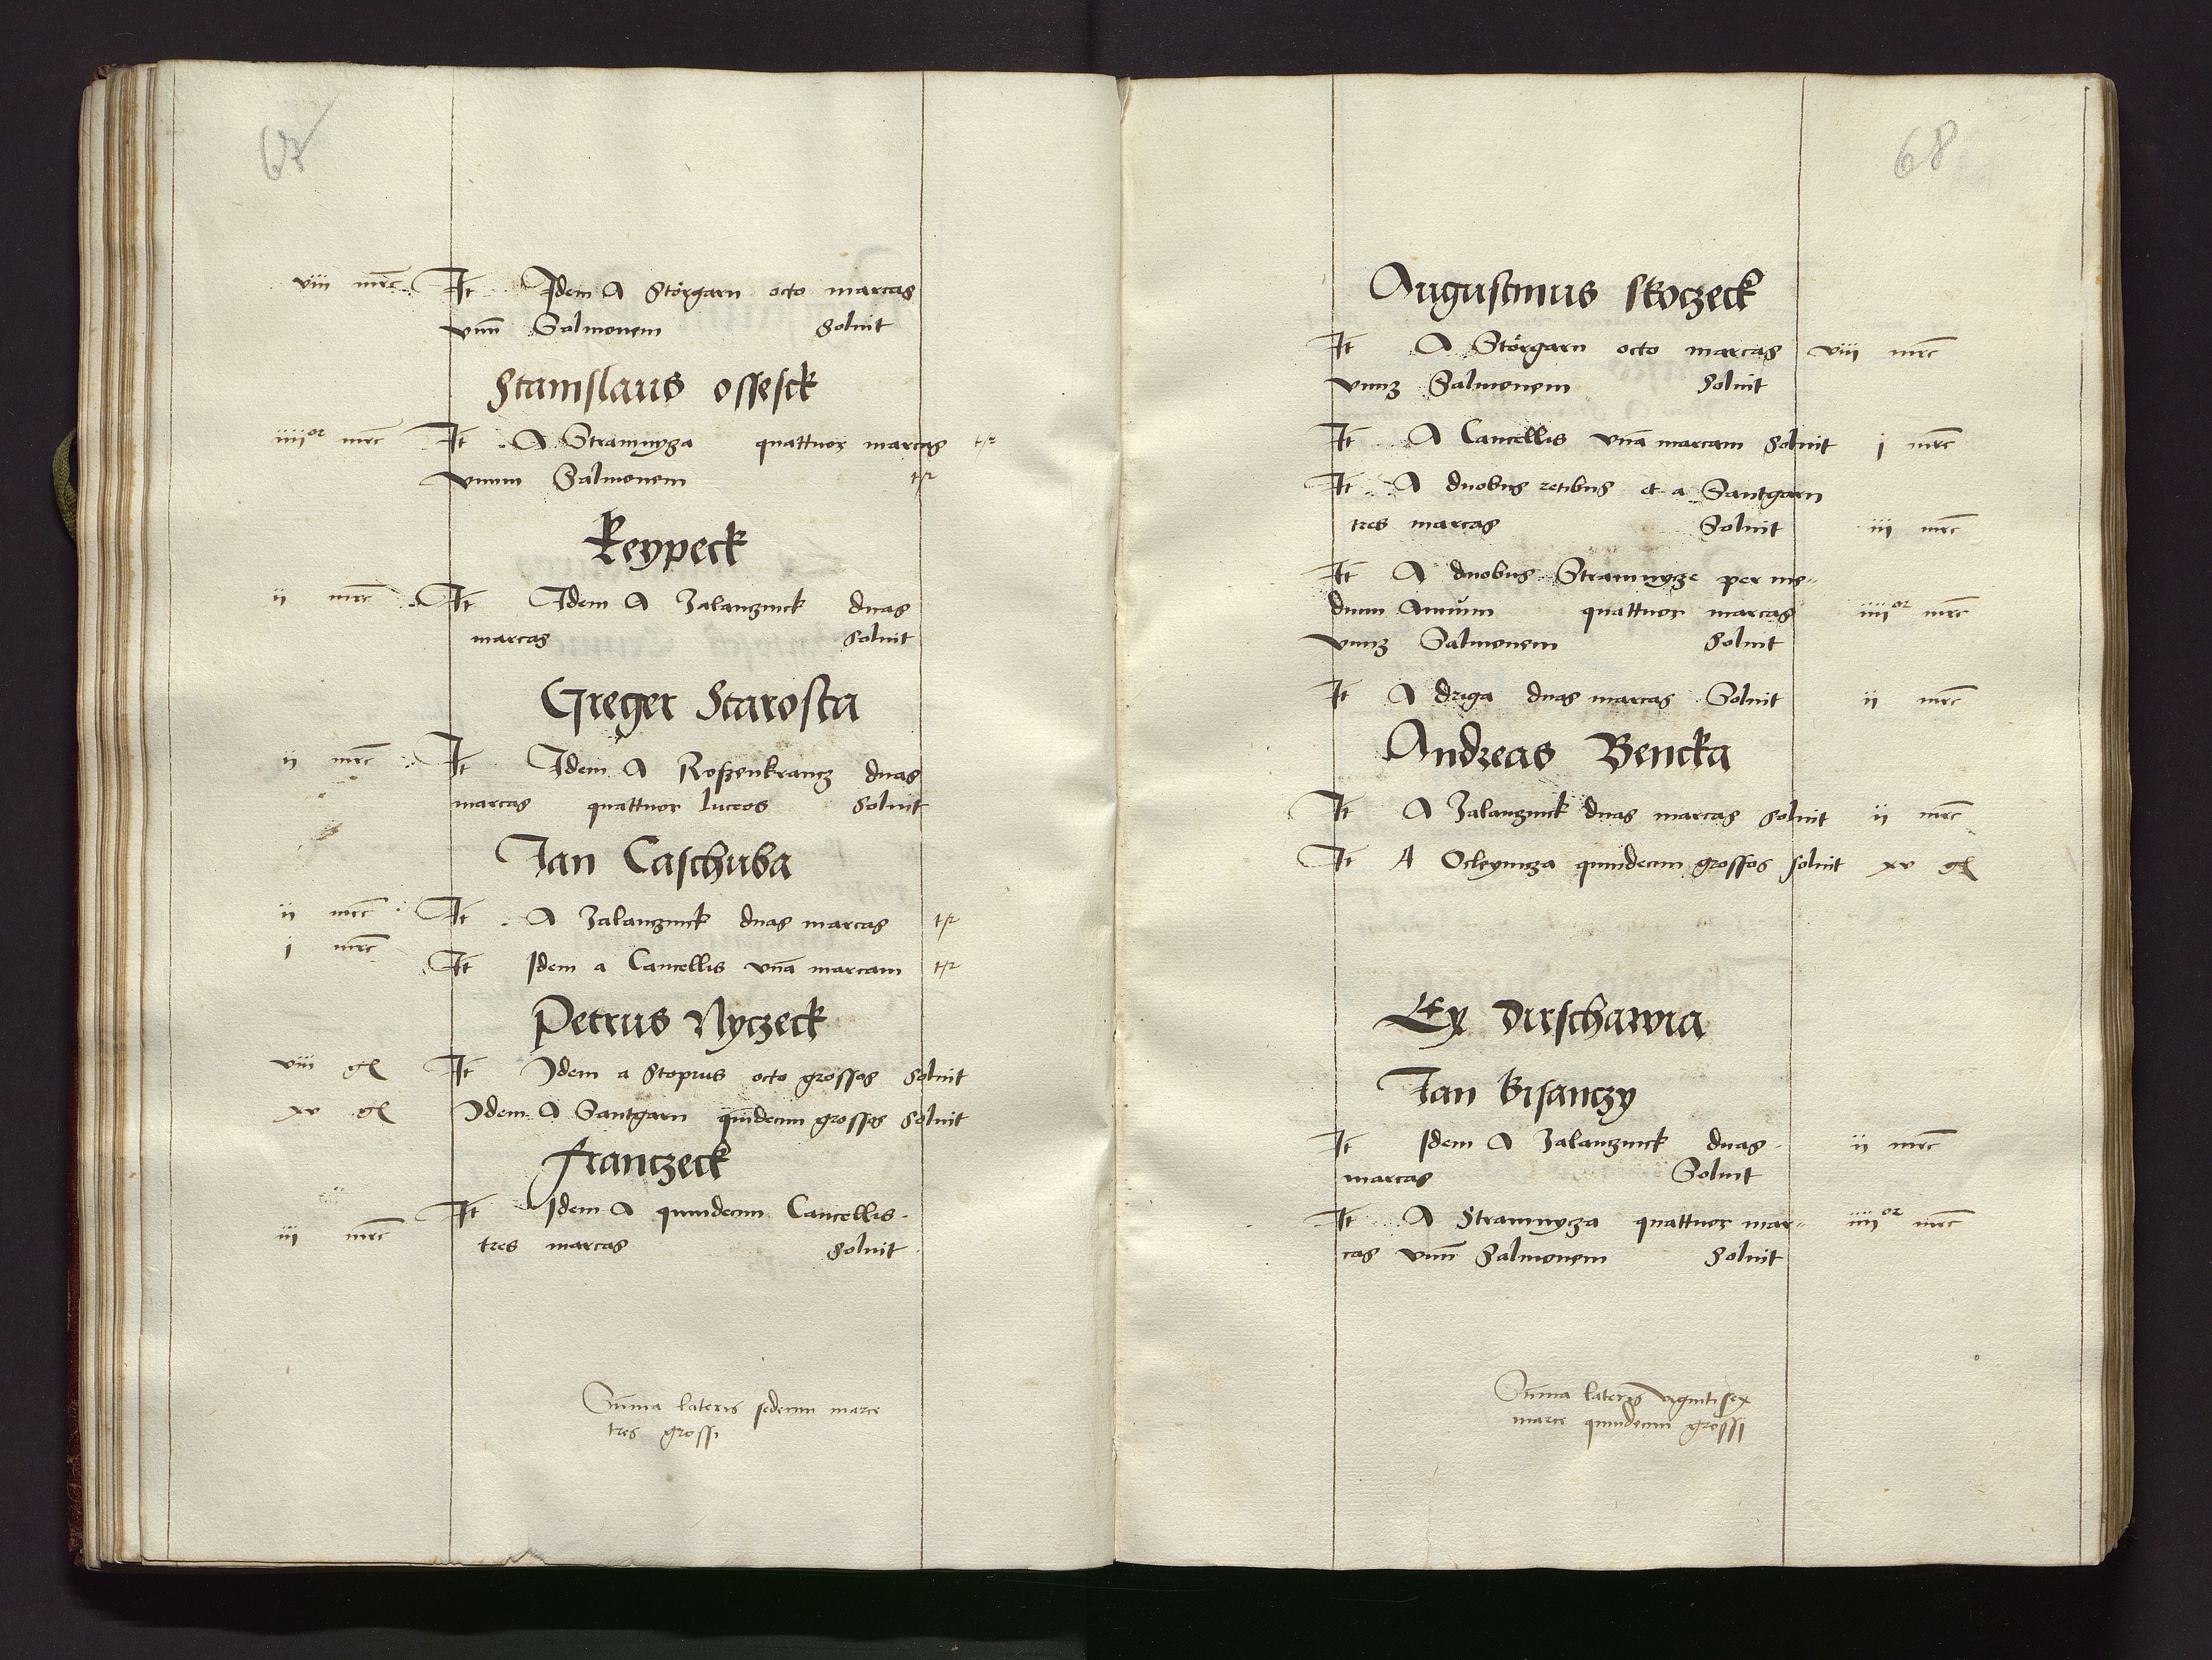 67
viii mrc It Idem A Störgarn octo marcas
vnū Salmonem Soluit
Stanislaus ossesck
iiiior mrc It A Stramnycza quattuor marcas tr
vnum Salmonem tr
Keypeck
ii mrc It Idem A Zalanzinck duas
marcas Soluit
Greger Starosta
ii mrc It Idem A Roszenkrancz duas
marcas quattuor luceos Soluit
Jan Caschuba
ii mrc It A Zalanzinck duas marcas tr
i mrc It Idem a Cancellis vnā marcam tr
Petrus Nyczeck
viii gl It Idem a Stoprus octo grossos Soluit
xv gl Idem A Santgarn qūidecim grossos Soluit
franczeck
It Idem A quindecim Cancellis
iii mrc tres marcas Soluit
Sūma lateris sedecim marce
tres grossi
68
Augustinus Skoczeck
It A Störgarn octo marcas viii mrc
vnuz Salmonem Soluit
It A Cancellis vnā marcam Soluit i mrc
It A duobus retibus et a Santgarn
tres marcas Soluit iii mrc
It A duobus Stramnycze per me-
dium Annum quattuor marcas iiiior mrc
vnuz Salmonem Soluit
It A driga duas marcas Soluit ii mrc
Andreas Bencka
It A Zalanzinck duas marcas Soluit ii mrc
It A Ocleyncza quindecim grossos soluit xv gl
Ex Dirschawia
Jan Bisanczy
It Idem A Zalanzinck duas ii mrc
marcas Soluit
It A Stramnycza quattuor mar- iiiior mrc
cas vnū Salmonem Soluit
Sūma lateris viginti sex
marce quindecim grossi